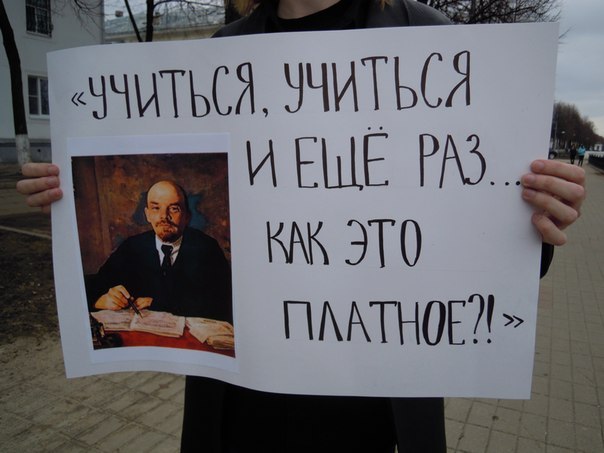 «УЧИТЬСЯ, УЧИТЬСЯ
И ЕЩЁ РАЗ...
КАК ЭТО
ПЛАТНОЕ?!»